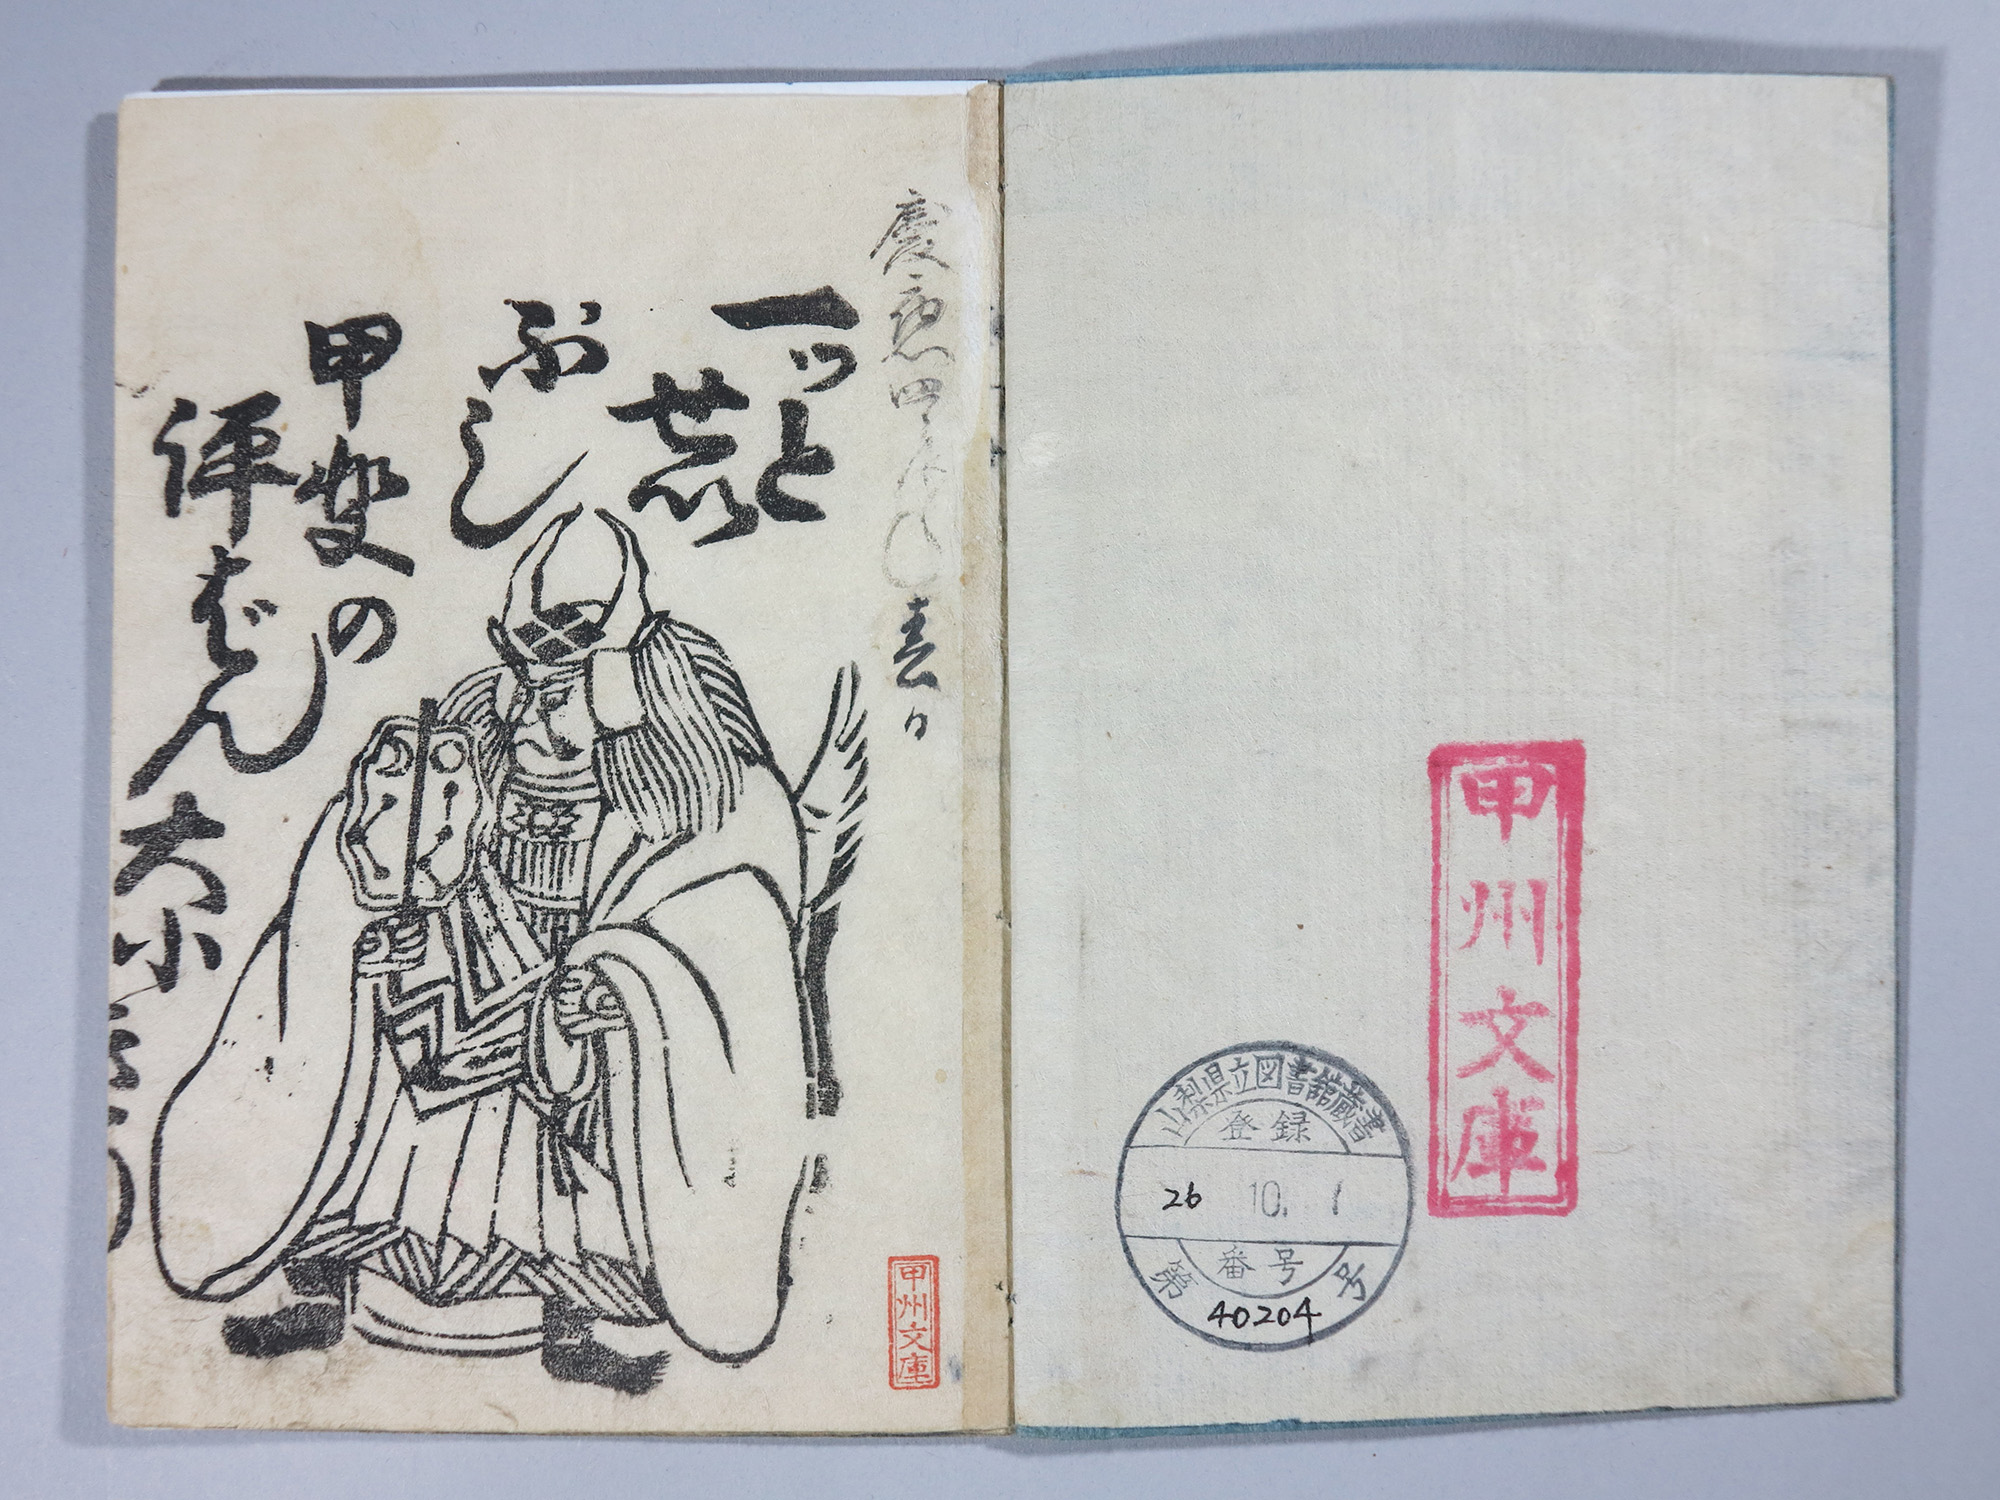 甲州文庫
山梨県立図書館蔵書
登録
26 10. 1
番号
第 40204 号
慶應四
春日
一ッと
ぶし
甲斐の
評ばん
大小
甲州文庫